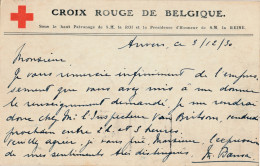 CROIX ROUGE DE BELGIQUE.
Sous le Haut Patronage de S.M. le ROI et la Présidence d'Honneur de S.M. la REINE.
Anvers, ce 3/12/30
Monsieur
Je vous remercie infiniment de l'empres-
sement que vous avez mis à me donner
le renseignement demandé, je me rendrai
donc chez Mr l'Inspecteur van, vendredi
prochain entre 2 h. et 3 heures.
Veuillez agréer je vous prie, Monsieur, l'expression
de mes sentiments très distingués.